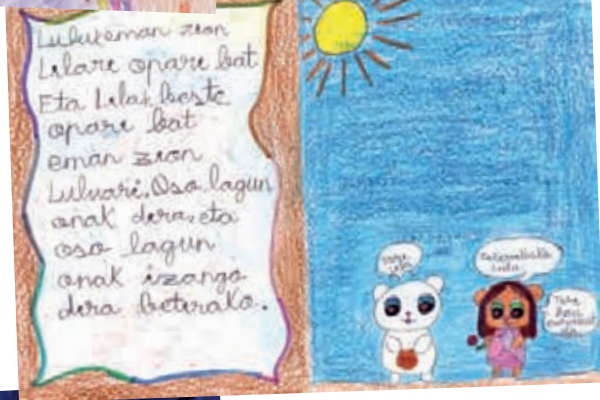 Luluk eman zion
Lilari opari bat
Eta Lilak beste
opari bat
eman zion
Luluari. Oso lagun
onak dira, eta
oso lagun
onak izango
dira betirako.